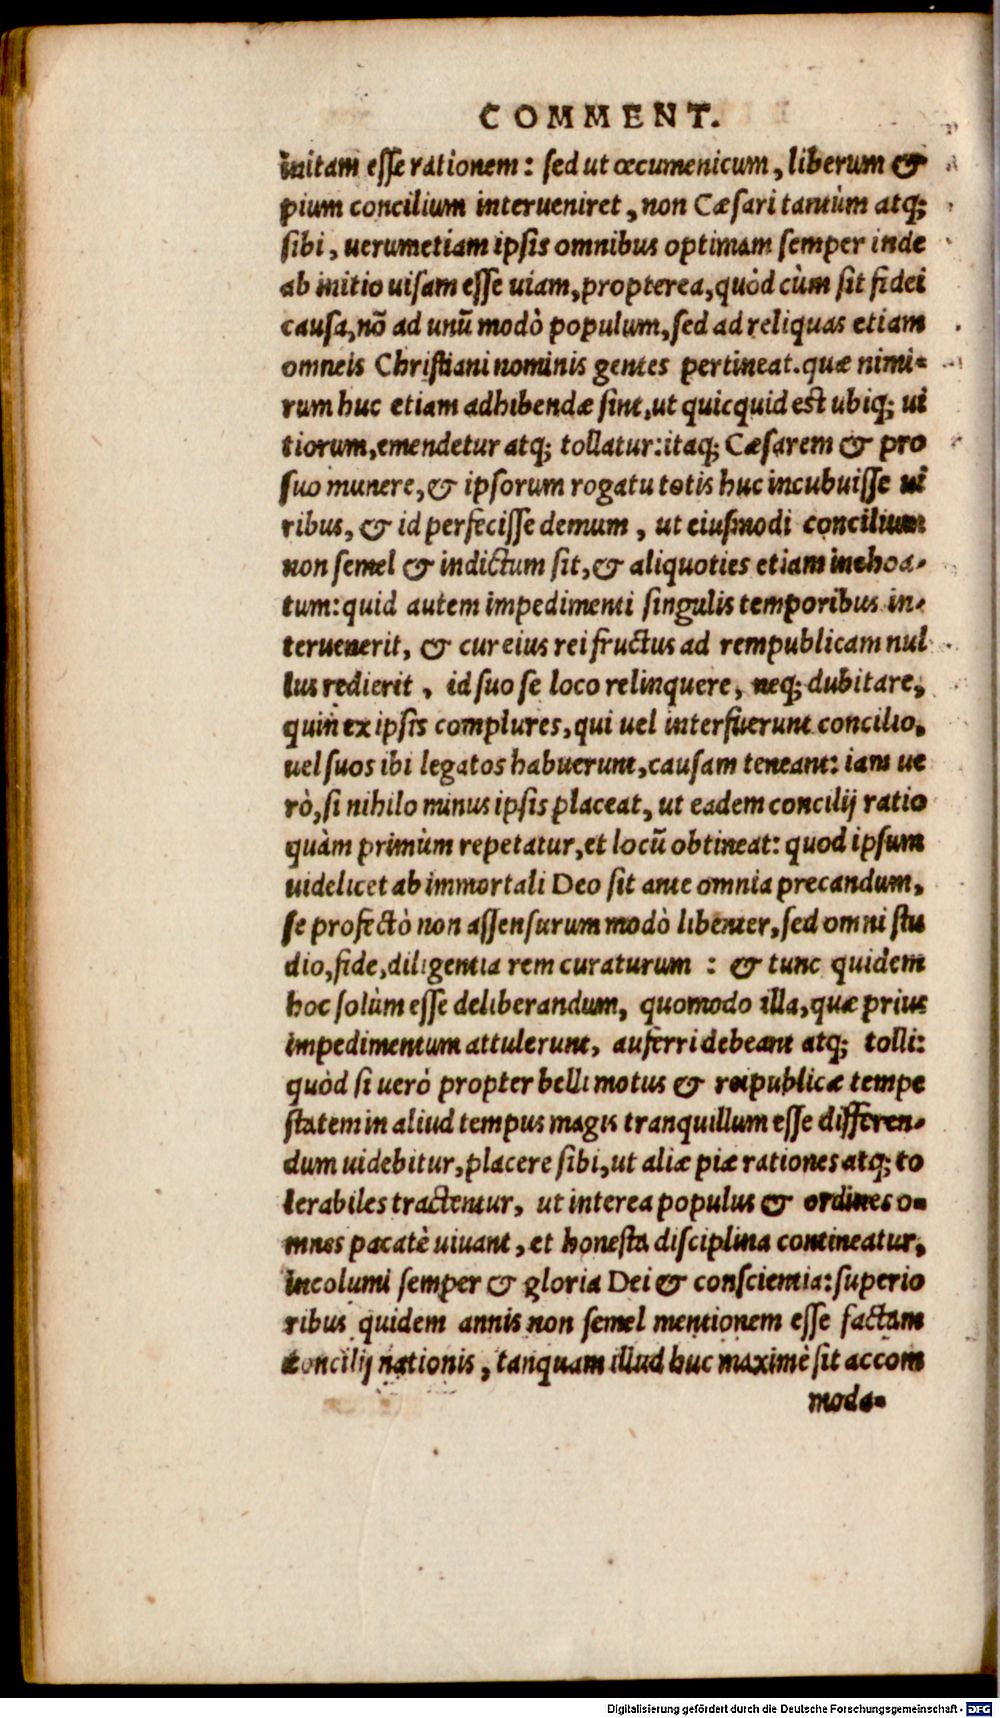 COMMENT.
initam esse rationem: sed ut œcumenicum, liberum &
pium concilium interueniret, non Cæsari tantùm atq;
sibi, uerumetiam ipsis omnibus optimam semper inde
ab initio uisam esse uiam, propterea, quòd cùm sit fidei
causa, nõ ad unũ modò populum, sed ad reliquas etiam
omneis Christiani nominis gentes pertineat. quæ nimi-
rum huc etiam adhibendæ sint, ut quicquid est ubiq; ui
tiorum, emendetur atq; tollatur: itaq; Cæsarem & pro
suo munere, & ipsorum rogatu totis huc incubuisse ui
ribus, & id perfecisse demum, ut eiusmodi concilium
non semel & indictum sit, & aliquoties etiam inchoa-
tum: quid autem impedimenti singulis temporibus in-
teruenerit, & cur eius rei fructus ad rempublicam nul
lus redierit, id suo se loco relinquere, neq; dubitare,
quin ex ipsis complures, qui uel interfuerunt concilio,
uel suos ibi legatos habuerunt, causam teneant: iam ue
rò, si nihilo minus ipsis placeat, ut eadem concilij ratio
quàm primùm repetatur, et locũ obtineat: quod ipsum
uidelicet ab immortali Deo sit ante omnia precandum,
se profectò non assensurum modò libenter, sed omni stu
dio, fide, diligentia rem curaturum : & tunc quidem
hoc solùm esse deliberandum, quomodo illa, quæ prius
impedimentum attulerunt, auferri debeant atq; tolli:
quòd si uerò propter belli motus & reipublicæ tempe
statem in aliud tempus magis tranquillum esse differen-
dum uidebitur, placere sibi, ut aliæ piæ rationes atq; to
lerabiles tractentur, ut interea populus & ordines o-
mnes pacatè uiuant, et honesta disciplina contineatur,
incolumi semper & gloria Dei & conscientia: superio
ribus quidem annis non semel mentionem esse factam
concilij nationis, tanquam illud huc maximè sit accom
moda-
Digitalisierung gefördert durch die Deutsche Forschungsgemeinschaft - DFG